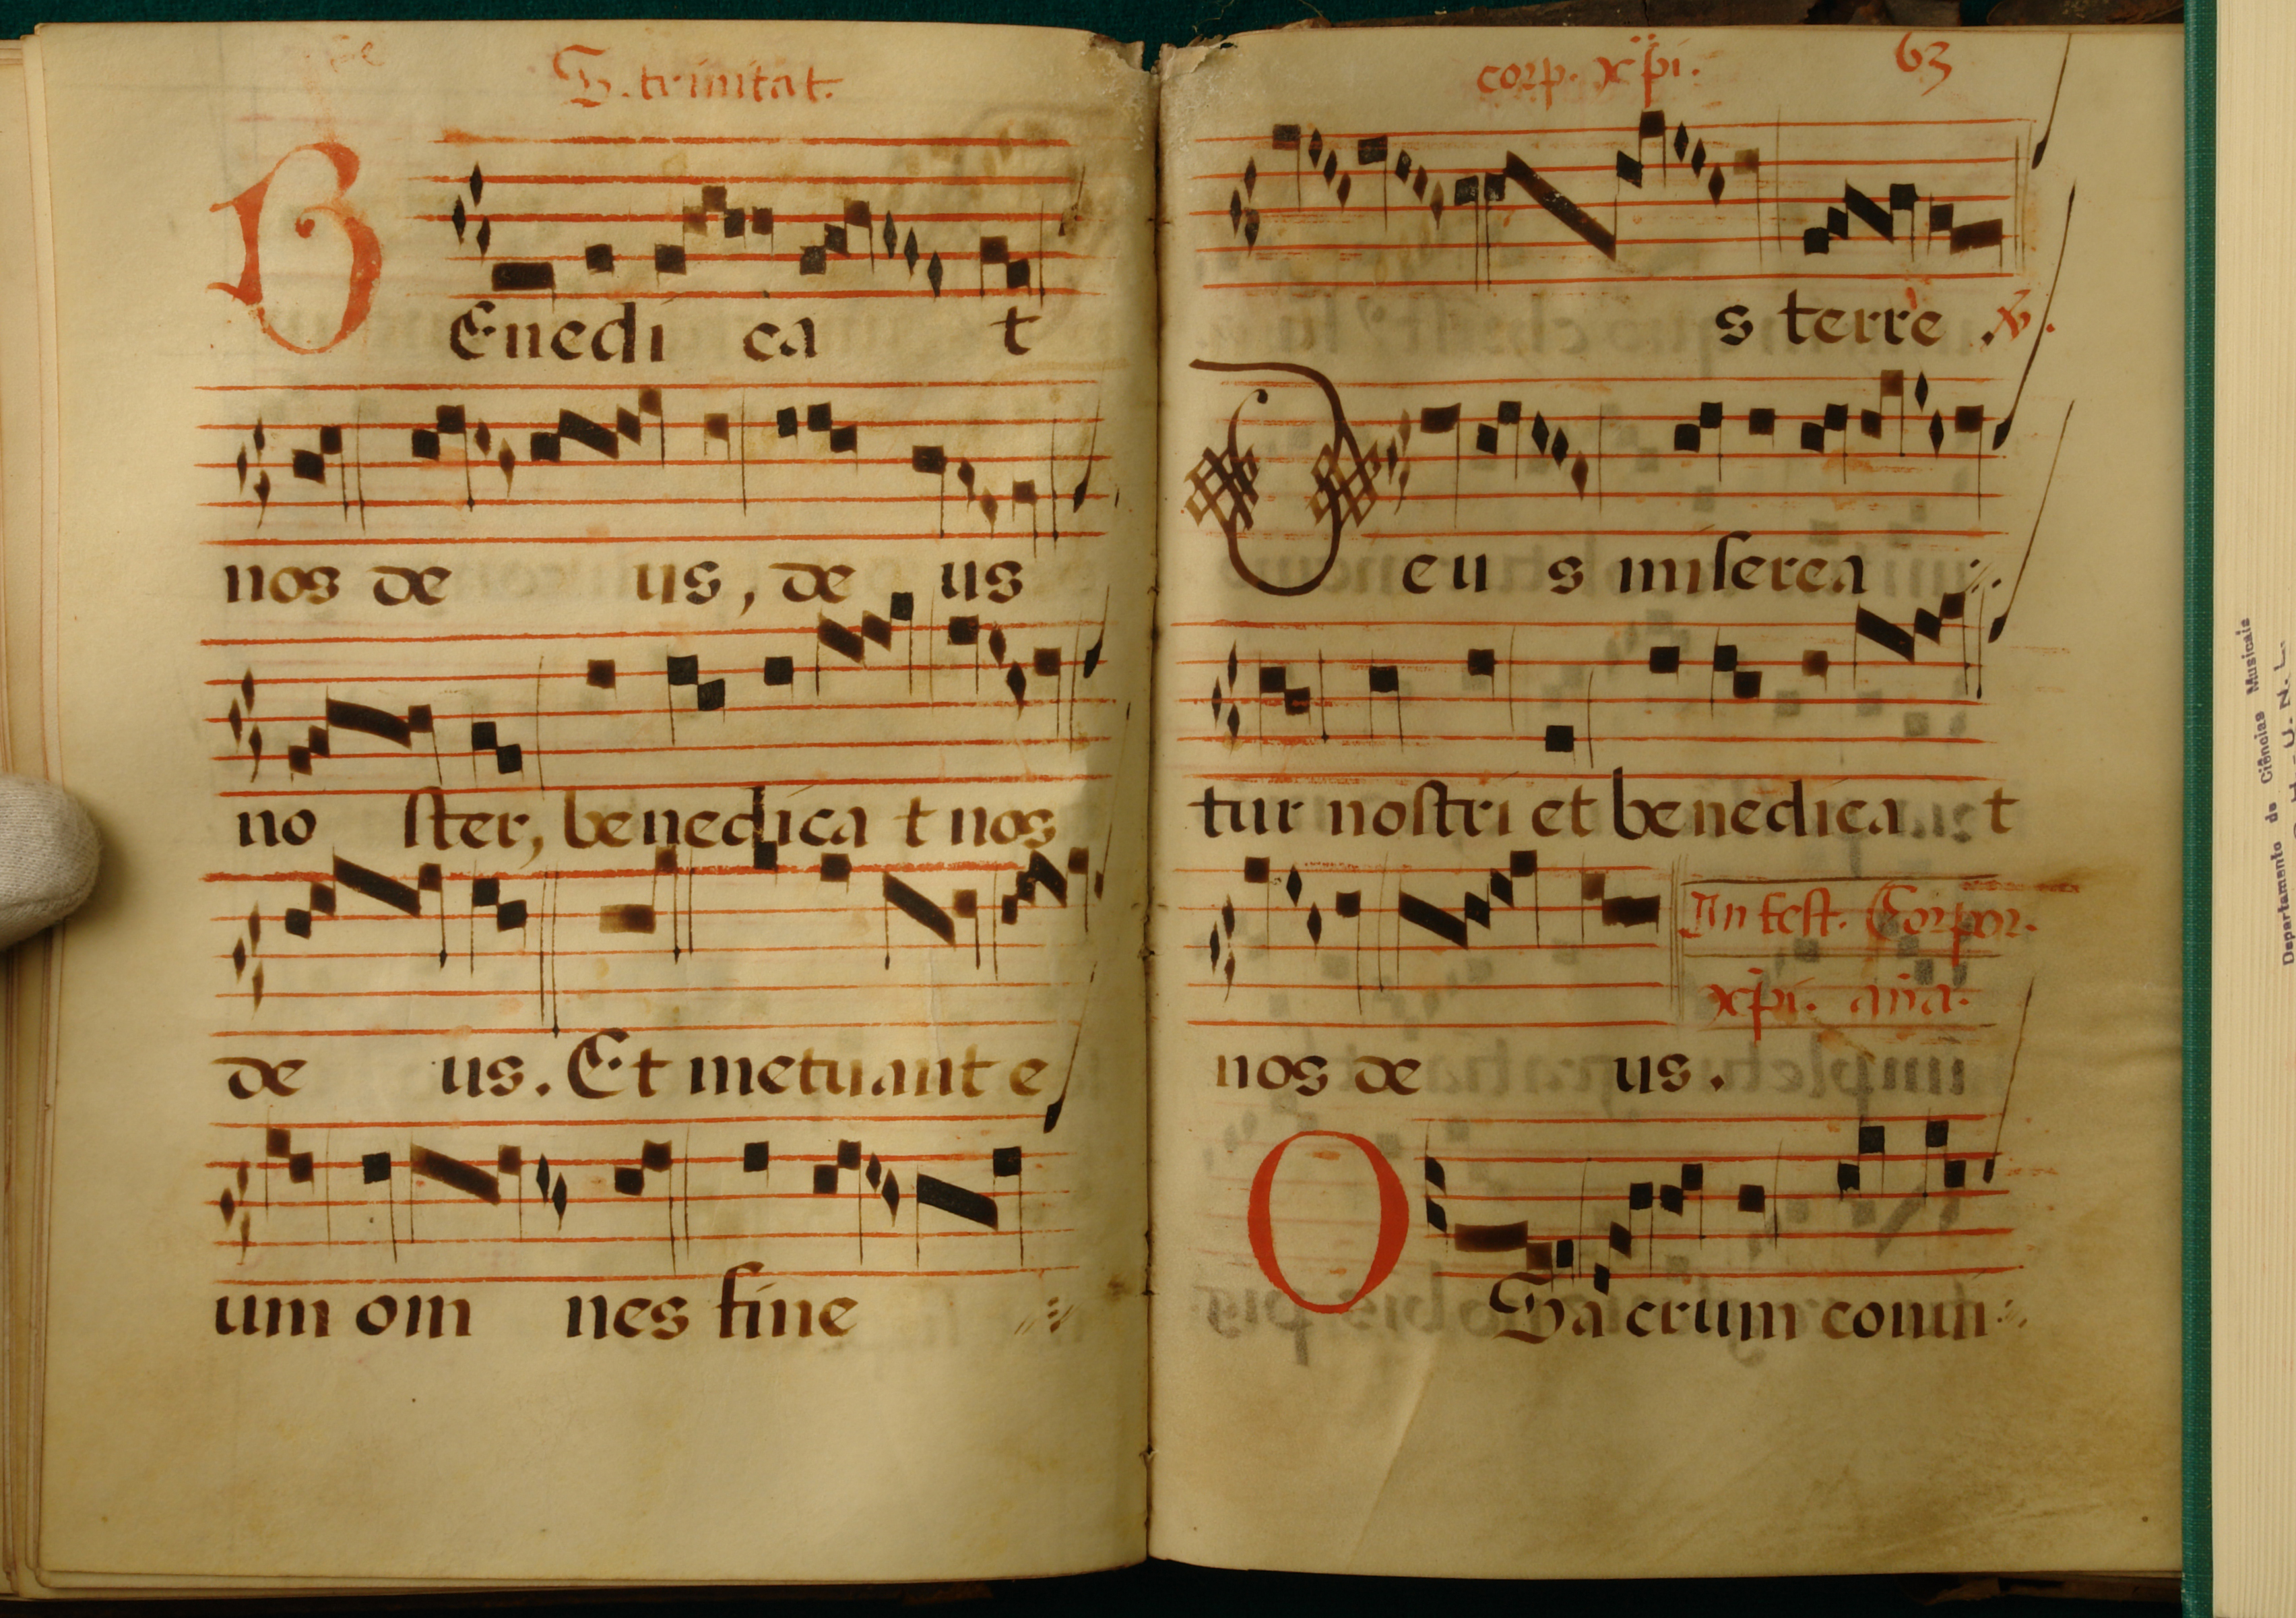 S. trinitat.
BEnedi ca t
nos de us, de us
no ster, benedica t nos
de us. Et metuant e
um om nes fine
corp. xp̄i. 63
s terre. ℣.
Deu s miserea
tur nostri et benedica t
nos de us.
In fest. Corpor.
xp̄i. an̄a.
O Sacrum conui
Departamento de Ciências Musicais
U. N. L.